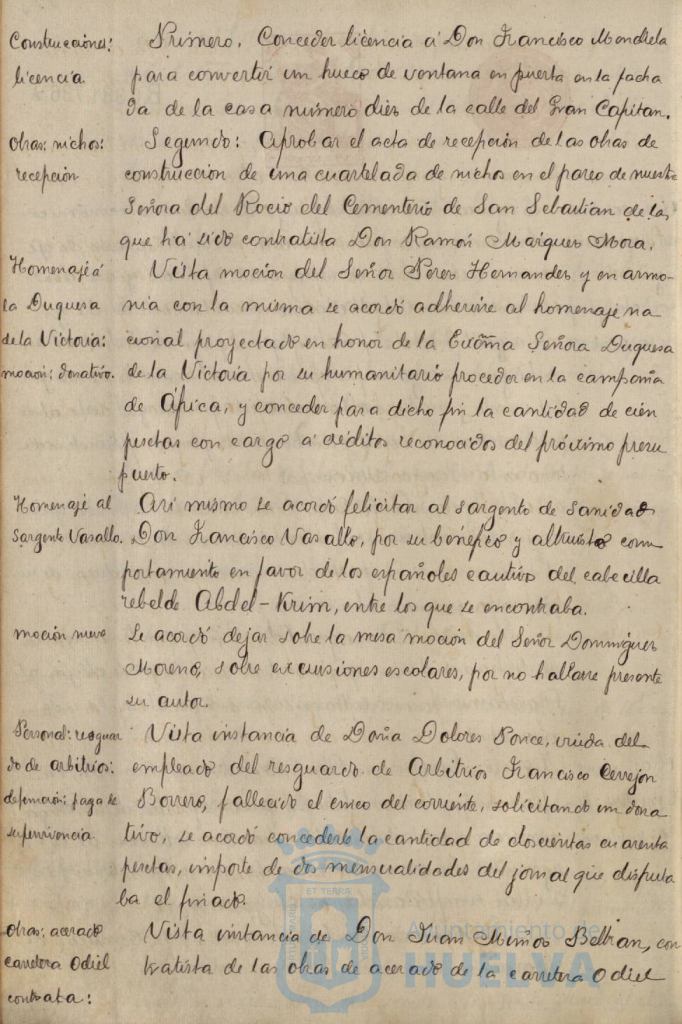 Construcciones:
licencia.
Primero. Conceder licencia á Don Francisco Mondiela
para convertir un hueco de ventana en puerta en la facha
da de la casa número diez de la calle del Gran Capitan.
Obras: nichos:
recepción
Segundo: Aprobar el acta de recepción de las obras de
construcción de una cuartelada de nichos en el paseo de nuestra
Señora del Rocio del Cementerio de San Sebastian de las
que há sido contratista Don Ramón Marquez Mora.
Homenaje á
la Duquesa
de la Victoria:
moción: donativo.
Vista moción del Señor Perez Hernandez y en armo-
nia con la misma se acordó adherirse al homenaje na
cional proyectado en honor de la Excma Señora Duquesa
de la Victoria por su humanitario proceder en la campaña
de África, y conceder para dicho fin la cantidad de cien
pesetas con cargo a créditos reconocidos del próximo presu
puesto.
Homenaje al
Sargento Vasallo.
Asi mismo se acordó felicitar al sargento de Sanidad
Don Francisco Vasallo, por su benéfico y altruista com
portamiento en favor de los españoles cautivos del cabecilla
rebelde Abdel-Krim, entre los que se encontraba.
moción nueva
Se acordó dejar sobre la mesa moción del Señor Dominguez
Moreno, sobre excursiones escolares, por no hallarse presente
su autor.
Personal: resguar
do de arbitrios:
defunción: paga de
supervivencia.
Vista instancia de Doña Dolores Ponce, viuda del
empleado del resguardo de Arbitrios Francisco Cerrejon
Borrero, fallecido el cinco del corriente, solicitando un dona
tivo, se acordó concederle la cantidad de doscientas cuarenta
pesetas, importe de dos mensualidades del jornal que disfruta
ba el finado.
Obras: acerado
carretera Odiel
contrata:
Vista instancia de Don Juan Muños Beltran, con
tratista de las obras de acerado de la carretera Odiel
Ayuntamiento de
HUELVA